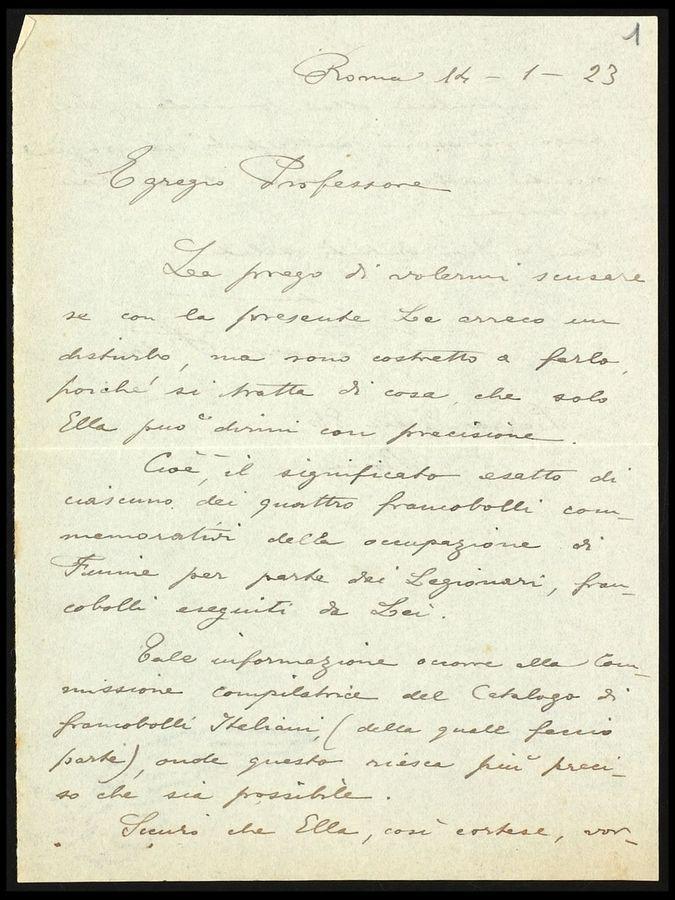 1
Roma 14 - 1 - 23
Egregio Professore
La prego di volermi scusare
se con la presente Le arreco un
disturbo, ma sono costretto a farlo,
poiché si tratta di cosa, che solo
Ella può dirmi con precisione.
Cioè, il significato esatto di
ciascuno dei quattro francobolli com-
memorativi della occupazione di
Fiume per parte dei Legionari, fran-
cobolli eseguiti da Lei.
Tale informazione occorre alla Com-
missione compilatrice del Catalogo di
francobolli Italiani, (della quale faccio
parte), onde questo riesca più preci-
so che sia possibile.
Sicuro che Ella, così cortese, vor-